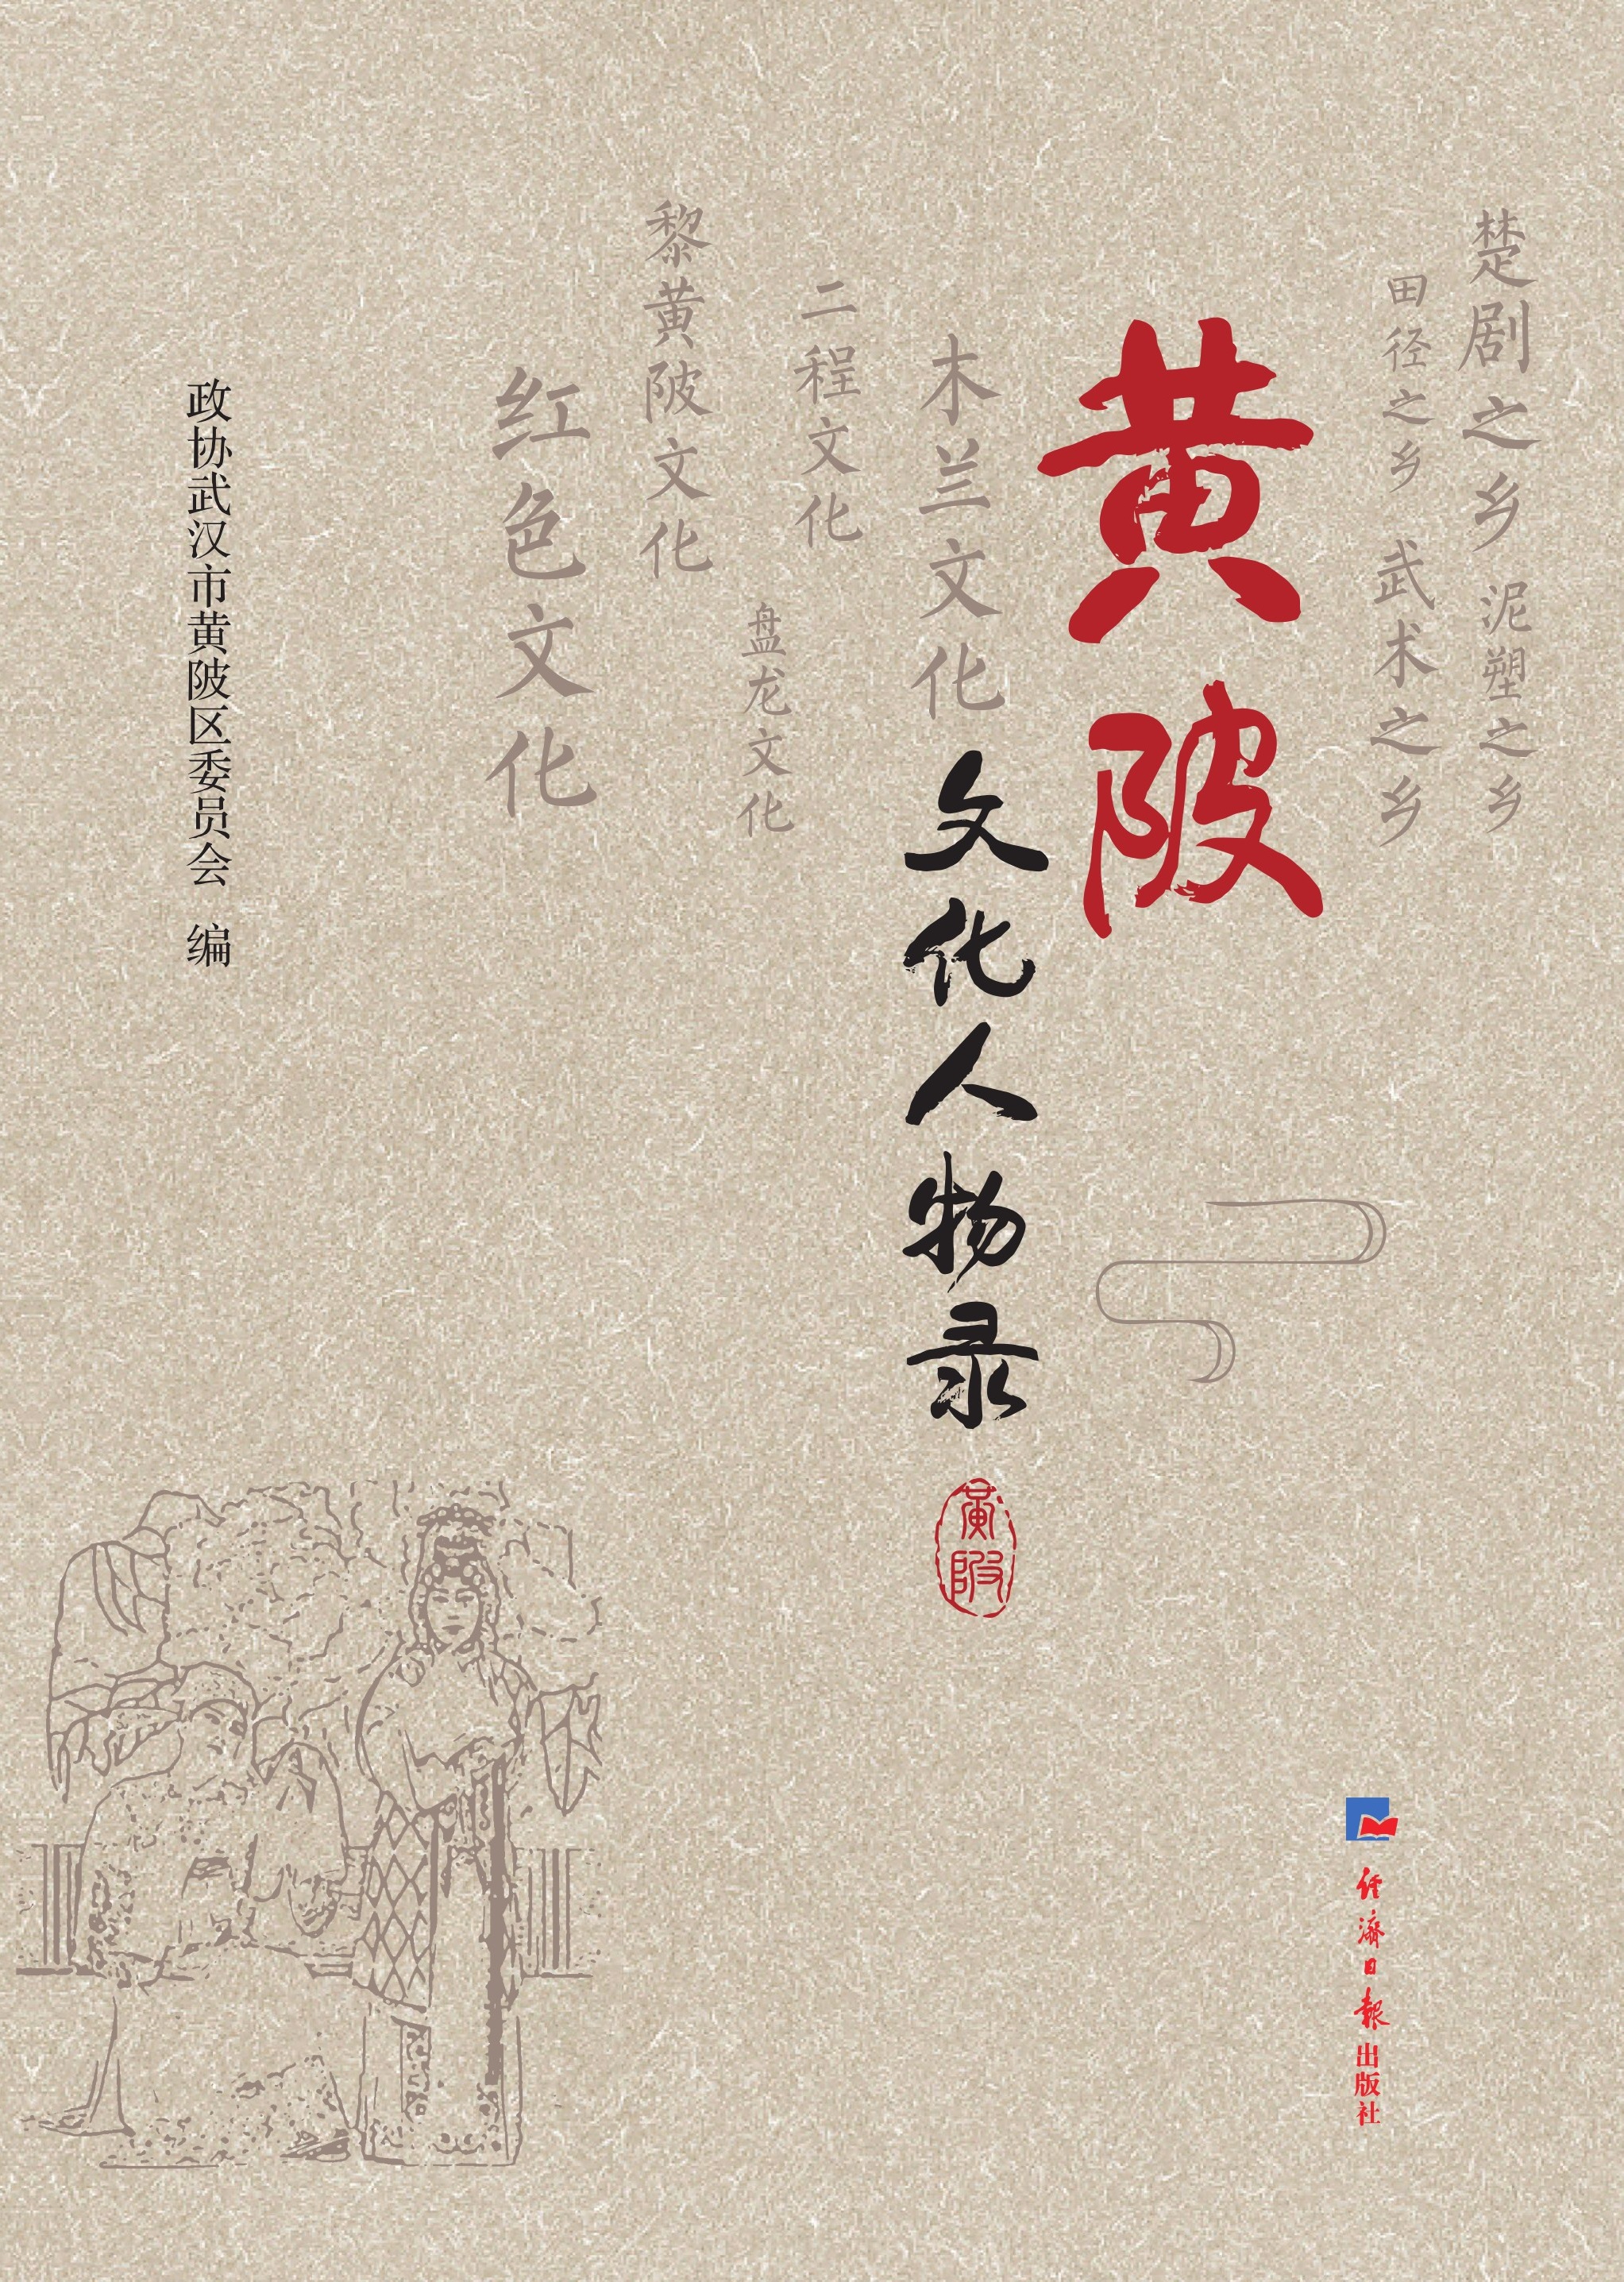 楚剧之乡 泥塑之乡
田径之乡 武术之乡
黄陂
木兰文化
文化人物录
黃陂
二程文化
盘龙文化
黎黄陂文化
红色文化
政协武汉市黄陂区委员会 编
经濟日報出版社